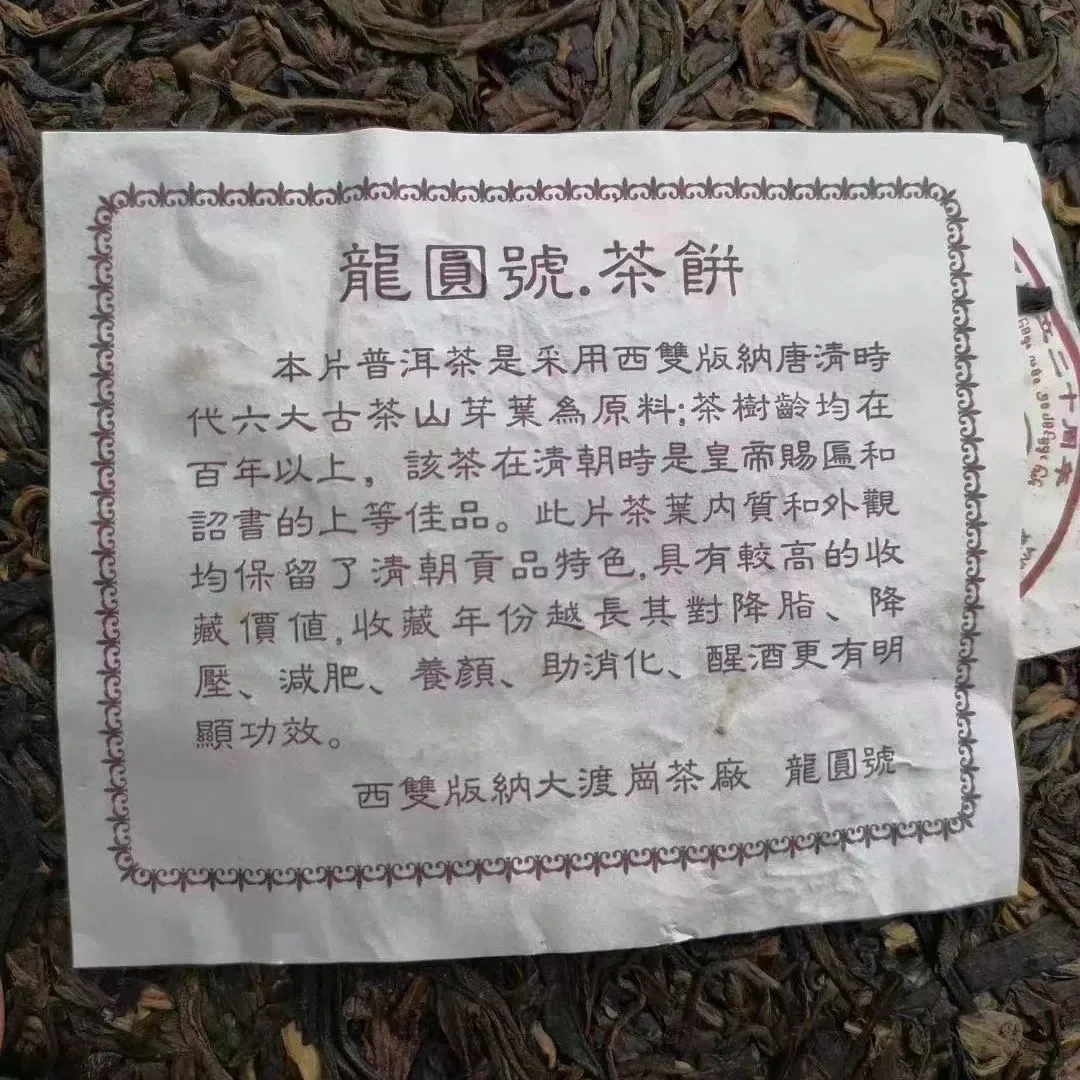 龍圓號.茶餅
本片普洱茶是采用西雙版納唐清時
代六大古茶山芽葉為原料;茶樹齡均在
百年以上,該茶在清朝時是皇帝賜匾和
詔書的上等佳品。此片茶葉内質和外觀
均保留了清朝貢品特色,具有較高的收
藏價值,收藏年份越長其對降脂、降
壓、減肥、養顏、助消化、醒酒更有明
顯功效。
西雙版納大渡崗茶廠 龍圓號
二十周年